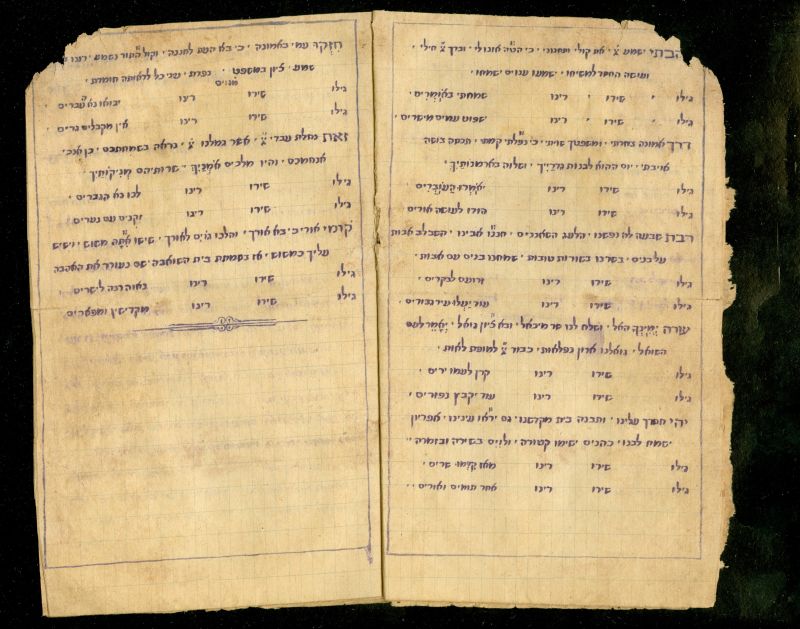 אהבתי ישמע יי׳ את קולי ותחנוני · כי הטה אזנו לי · וברך יי׳ חילי ·
ועושה החסד למשיחו · ישמעו ענוים ישמחו ·
גילו שירו רינו שמחתי באומרים ·
גילו שירו רינו שפוט עמים מישרים ·
דרך אמונה בחרתי · ומשפטך שויתי · כי נפלתי קמתי · תכסה בושה
אויבתי · יום ההוא לבנות גדריך · ושלוה בארמנותיך ·
גילו שירו רינו יאמרו העוברים ·
גילו שירו רינו הודו לעושה אורים ·
רבת שבעה לה נפשנו · הלעג השאננים · חננו אבינו · השב לב אבות
על בנים · בשרנו בשורות טובות · שמחנו בנים עם אבות ·
גילו שירו רינו
גילו שירו רינו
עורה ימינך האל · ושלח לנו שר מיכאל · ובא ציון גואל · יאמר לעם
השואל · נפלאות · לאות ·
גילו שירו רינו קרן לעמו ירים ·
גילו שירו רינו עוד יקבץ נפזרים ·
יהי חסדך עלינו · ותבנה בית מקדשנו · גם יראו עינינו · אפריון
ישמח לבנו · כהנים ישימו קטורה · ולוים בשירה ובזמרה ··
גילו שירו רינו מאז שרים ·
גילו שירו רינו אחר תומים ואורים ··
חזקו עמי באמונה · כי בא העת לחננה · וקול התור נשמע · רננו
שמע · ציון במשפט · נפדת · עיני כל
גוים
גילו שירו רינו יבואו נא עברים ·
גילו שירו רינו אין מקבלים גרים ·
זאת נחלת עבדי יי׳ · אשר גמלנו יי׳ · נראה בשמחתכם · כן אנכי ·
אנחמכם · והיו מלכים אומניך · שרותיהם מניקותיך ·
גילו שירו רינו לכו נא הגברים ·
גילו שירו רינו זקנים עם נערים ·
קומי אורי כי בא אורך · והלכו גוים לאורך · שישו אתה משוש · ושיש
עליך כמשוש · אז בשמחת בית השואבה · שם נעורר את האהבה
גילו שירו רינו נאוה תהלה לישרים ·
גילו שירו רינו